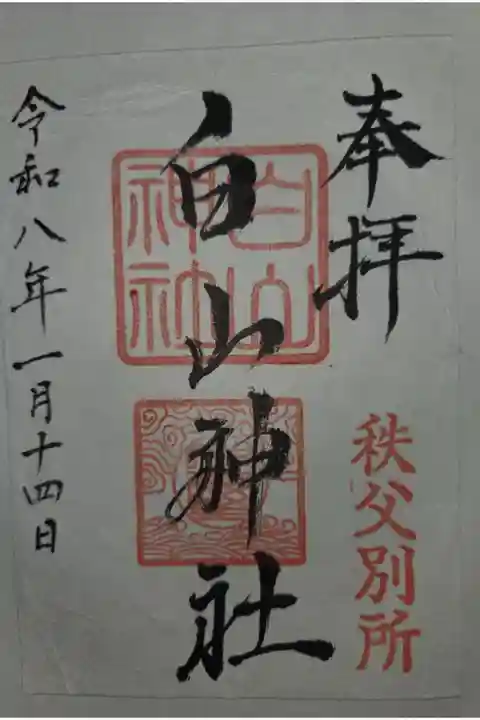 奉拝
秩父別所
白山神社
白山神社
令和八年一月十四日